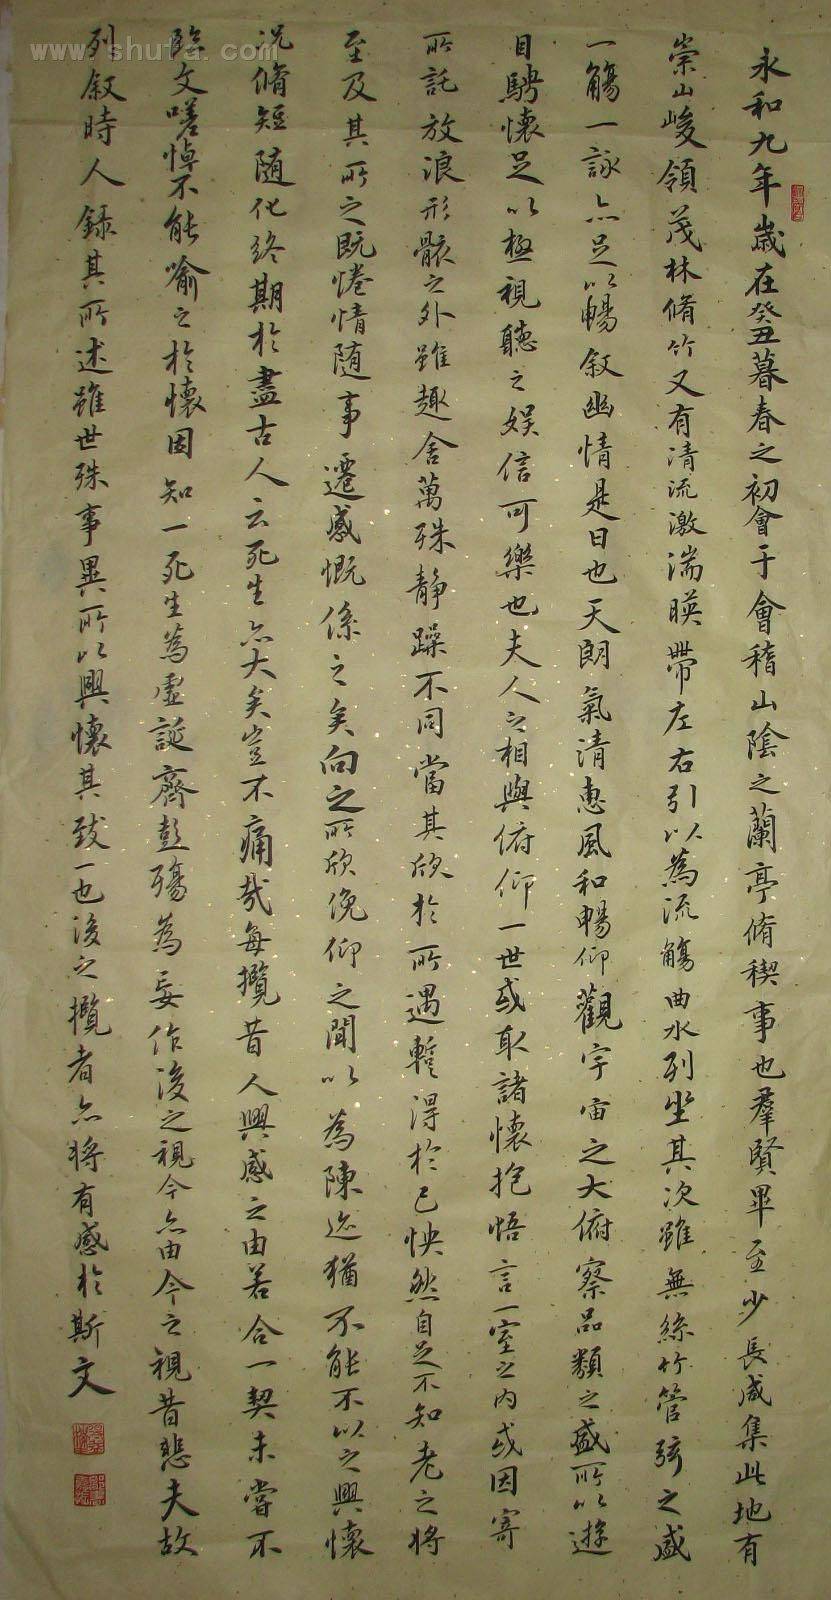 永和九年歲在癸丑暮春之初會于會稽山陰之蘭亭脩稧事也羣賢畢至少長咸集此地有
崇山峻領茂林脩竹又有清流激湍暎帶左右引以為流觴曲水列坐其次雖無絲竹管弦之盛
一觴一詠亦足以暢敘幽情是日也天朗氣清惠風和暢仰觀宇宙之大俯察品類之盛所以遊
目騁懷足以極視聽之娛信可樂也夫人之相與俯仰一世或取諸懷抱悟言一室之內或因寄
所託放浪形骸之外雖趣舍萬殊靜躁不同當其欣於所遇暫得於己怏然自足不知老之將
至及其所之既惓情隨事遷感慨係之矣向之所欣俛仰之閒以為陳迹猶不能不以之興懷
況脩短隨化終期於盡古人云死生亦大矣豈不痛哉每攬昔人興感之由若合一契未嘗不
臨文嗟悼不能喻之於懷固知一死生為虛誕齊彭殤為妄作後之視今亦由今之視昔悲夫故
列敘時人錄其所述雖世殊事異所以興懷其致一也後之攬者亦將有感於斯文
www.shufa.com